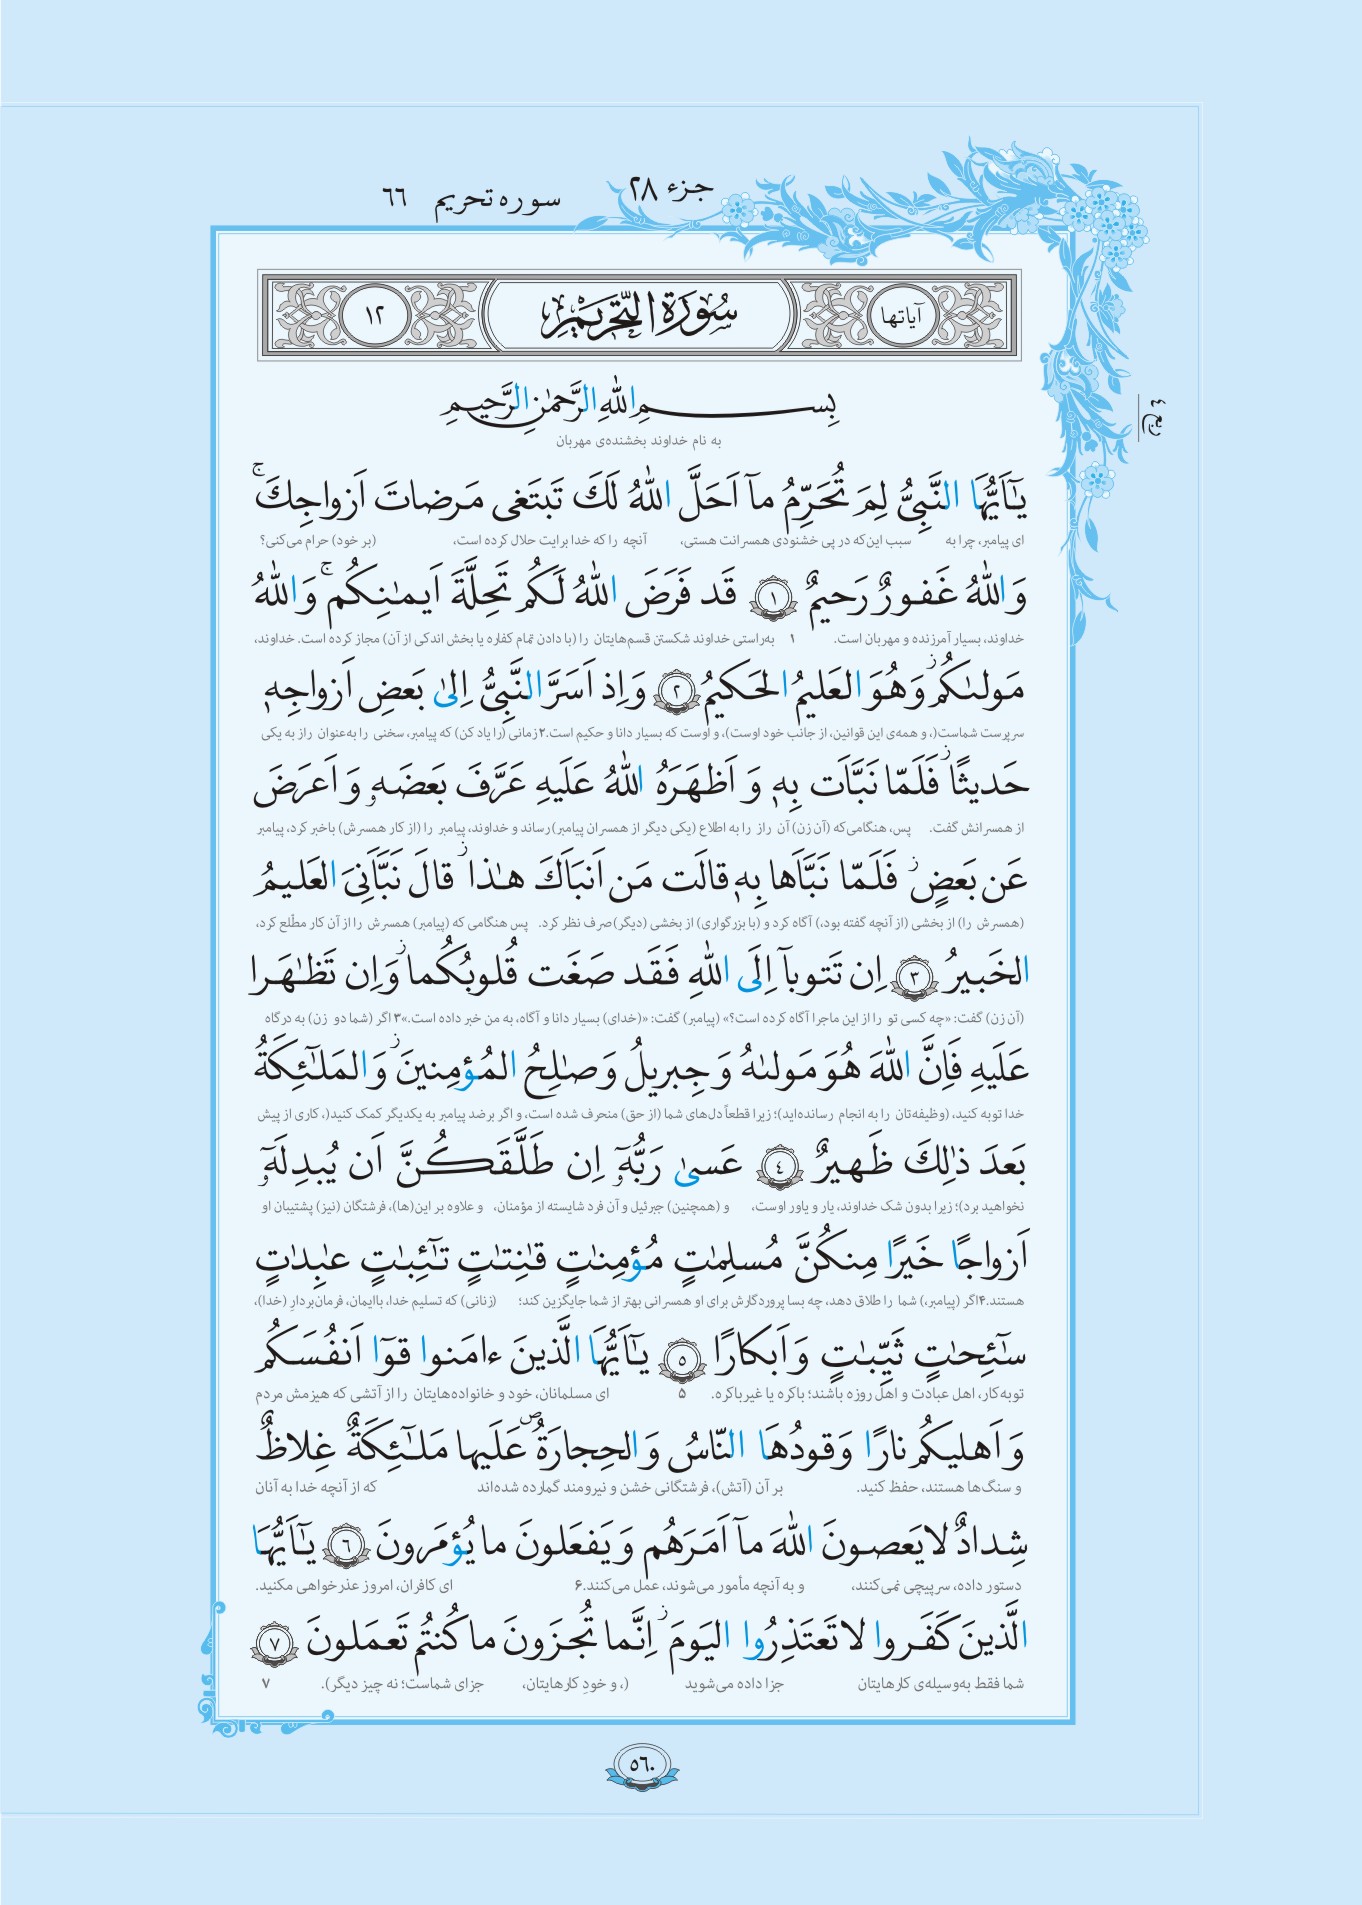 جزء ۲۸
سوره تحریم ۶۶
آیاتها سُورَةُ التَّحْرِيمِ ۱۲
ربع ٤
بِسمِ اللهِ الرَّحمٰنِ الرَّحیمِ
به نام خداوند بخشنده‌ی مهربان
يٰٓاَيُّهَا النَّبِيُّ لِمَ تُحَرِّمُ مآ اَحَلَّ اللهُ لَكَ تَبتَغى مَرضاتَ اَزواجِكَ ۚ
ای پیامبر، چرا به سبب این‌که در پی خشنودی همسرانت هستی، آنچه را که خدا برایت حلال کرده است، (بر خود) حرام می‌کنی؟
وَاللهُ غَفورٌ رَحيمٌ ١ قَد فَرَضَ اللهُ لَكُم تَحِلَّةَ اَيمٰنِكُم ۚ وَاللهُ
خداوند، بسیار آمرزنده و مهربان است. ۱ به‌راستی خداوند شکستن قسم‌هایتان را (با دادن تمام کفاره یا بخش اندکی از آن) مجاز کرده است. خداوند،
مَولىٰكُم ز وَهُوَ العَليمُ الحَكيمُ ٢ وَاِذ اَسَرَّ النَّبِيُّ اِلىٰ بَعضِ اَزواجِهٖ
سرپرست شماست(، و همه‌ی این قوانین، از جانب خود اوست)، و اوست که بسیار دانا و حکیم است.۲ زمانی (را یاد کن) که پیامبر، سخنی را به‌عنوان راز به یکی
حَديثًا ز فَلَمّا نَبَّاَت بِهٖ وَ اَظهَرَهُ اللهُ عَلَيهِ عَرَّفَ بَعضَهٗ وَ اَعرَضَ
از همسرانش گفت. پس، هنگامی‌که (آن زن) آن راز را به اطلاع (یکی دیگر از همسران پیامبر) رساند و خداوند، پیامبر را (از کار همسرش) باخبر کرد، پیامبر
عَن بَعضٍ ز فَلَمّا نَبَّاَها بِهٖ قالَت مَن اَنبَاَكَ هٰذا ز قالَ نَبَّاَنِىَ العَليمُ
(همسرش را) از بخشی (از آنچه گفته بود،) آگاه کرد و (با بزرگواری) از بخشی (دیگر) صرف نظر کرد. پس هنگامی که (پیامبر) همسرش را از آن کار مطّلع کرد،
الخَبيرُ ٣ اِن تَتوبآ اِلَى اللهِ فَقَد صَغَت قُلوبُكُما ز وَاِن تَظٰهَرا
(آن زن) گفت: «چه کسی تو را از این ماجرا آگاه کرده است؟» (پیامبر) گفت: «(خدای) بسیار دانا و آگاه، به من خبر داده است.»۳ اگر (شما دو زن) به درگاه
عَلَيهِ فَاِنَّ اللهَ هُوَ مَولىٰهُ وَ جِبريلُ وَ صٰلِحُ المُؤمِنينَ ز وَ المَلٰٓئِكَةُ
خدا توبه کنید، (وظیفه‌تان را به انجام رسانده‌اید)؛ زیرا قطعاً دل‌های شما (از حق) منحرف شده است، و اگر برضد پیامبر به یکدیگر کمک کنید(، کاری از پیش
بَعدَ ذٰلِكَ ظَهيرٌ ٤ عَسىٰ رَبُّهٗٓ اِن طَلَّقَكُنَّ اَن يُبدِلَهٗٓ
نخواهید برد)؛ زیرا بدون شک خداوند، یار و یاور اوست، و (همچنین) جبرئیل و آن فرد شایسته از مؤمنان، و علاوه بر این(ها)، فرشتگان (نیز) پشتیبان او
اَزواجًا خَيرًا مِنكُنَّ مُسلِمٰتٍ مُؤمِنٰتٍ قٰنِتٰتٍ تٰٓئِبٰتٍ عٰبِدٰتٍ
هستند.۴ اگر (پیامبر،) شما را طلاق دهد، چه بسا پروردگارش برای او همسرانی بهتر از شما جایگزین کند؛ (زنانی) که تسلیم خدا، باایمان، فرمان‌بردارِ (خدا)،
سٰٓئِحٰتٍ ثَيِّبٰتٍ وَ اَبكارًا ٥ يٰٓاَيُّهَا الَّذينَ ءامَنوا قوٓا اَنفُسَكُم
توبه‌کار، اهل عبادت و اهل روزه باشند؛ باکره یا غیرباکره. ۵ ای مسلمانان، خود و خانواده‌هایتان را از آتشی که هیزمش مردم
وَ اَهليكُم نارًا وَقودُهَا النّاسُ وَ الحِجارَةُ ص عَلَيها مَلٰٓئِكَةٌ غِلاظٌ
و سنگ‌ها هستند، حفظ کنید. بر آن (آتش)، فرشتگانی خشن و نیرومند گمارده شده‌اند که از آنچه خدا به آنان
شِدادٌ لا يَعصونَ اللهَ مآ اَمَرَهُم وَ يَفعَلونَ ما يُؤمَرونَ ٦ يٰٓاَيُّهَا
دستور داده، سرپیچی نمی‌کنند، و به آنچه مأمور می‌شوند، عمل می‌کنند.۶ ای کافران، امروز عذرخواهی مکنید.
الَّذينَ كَفَروا لا تَعتَذِرُوا اليَومَ ز اِنَّما تُجزَونَ ما كُنتُم تَعمَلونَ ٧
شما فقط به‌وسیله‌ی کارهایتان جزا داده می‌شوید (، و خودِ کارهایتان، جزای شماست؛ نه چیز دیگر). ۷
٥٦٠